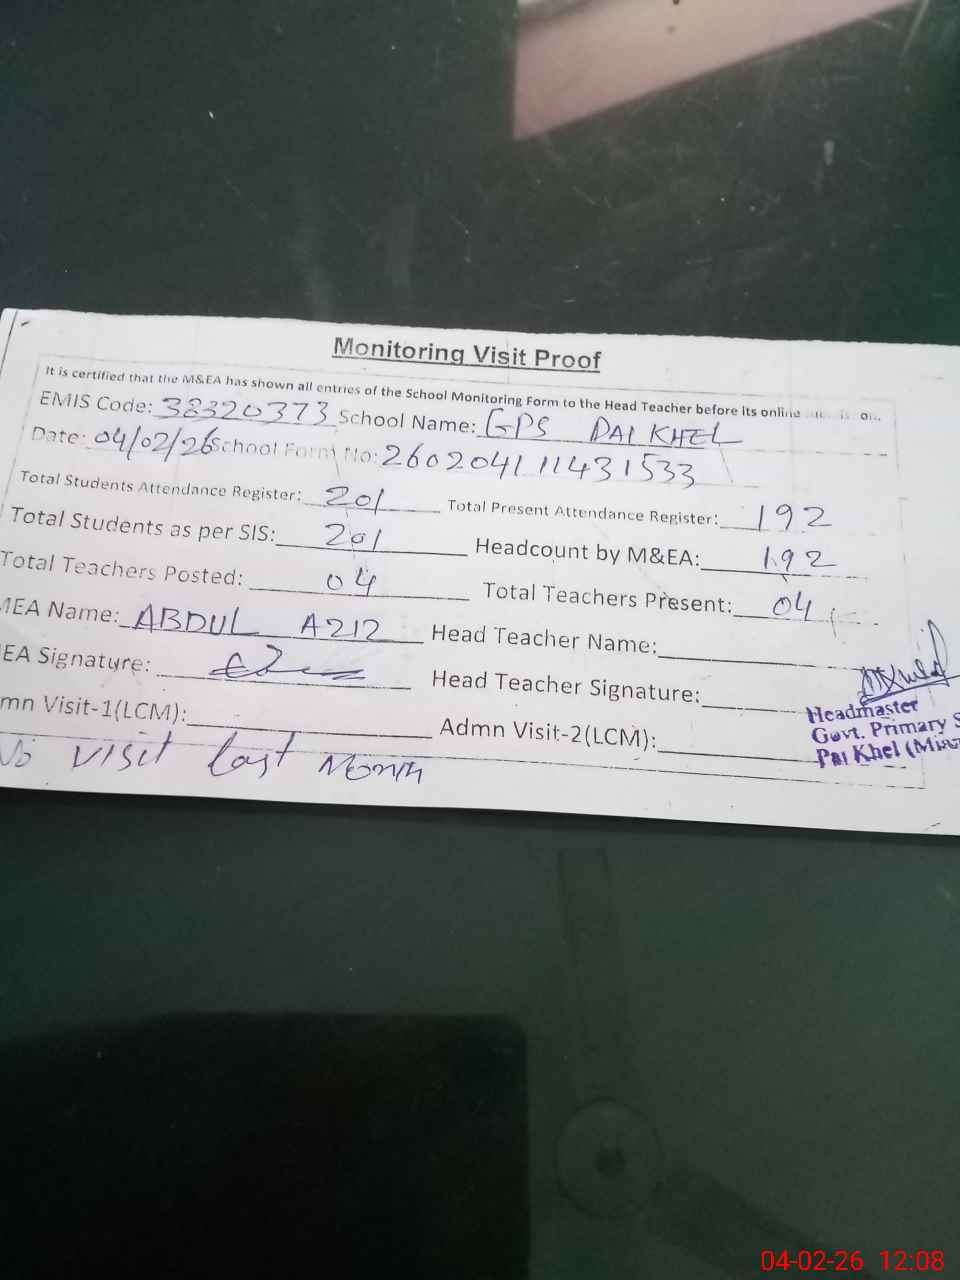 Monitoring Visit Proof
It is certified that the M&EA has shown all entries of the School Monitoring Form to the Head Teacher before its online
EMIS Code: 38320373 School Name: GPS PAI KHEL
Date: 04/02/26 School Form No: 260204111431533
Total Students Attendance Register: 201 Total Present Attendance Register: 192
Total Students as per SIS: 201 Headcount by M&EA: 192
Total Teachers Posted: 04 Total Teachers Present: 04
MEA Name: ABDUL AZIZ Head Teacher Name:
EA Signature: Head Teacher Signature:
mn Visit-1(LCM): Admn Visit-2(LCM):
Headmaster
Govt. Primary S
Pai Khel (Mian
No visit last Month
04-02-26 12:08